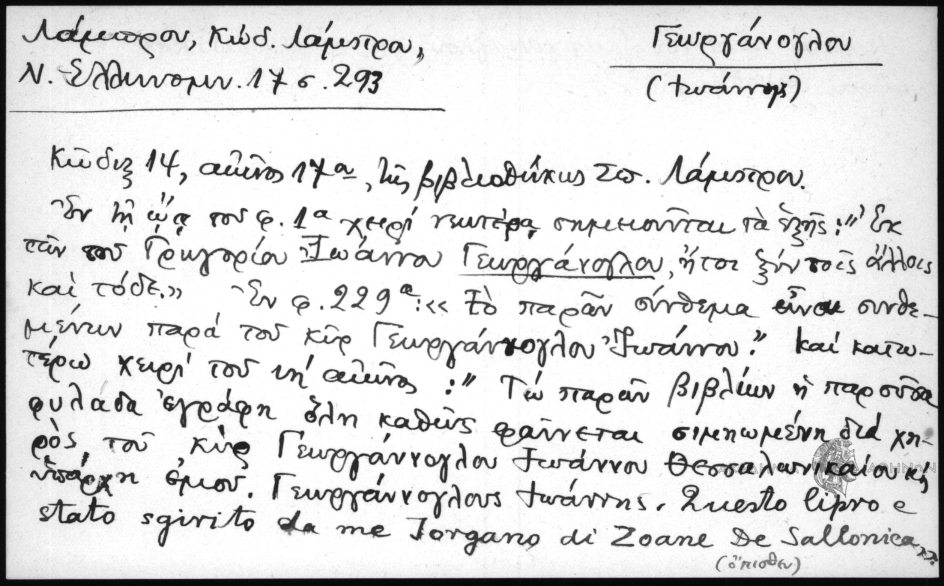 Λάμπρου, Κώδ. Λάμπρου,
Ν. Ἑλληνομν. 17 σ. 293
Γεωργάνογλου
(Ἰωάννης)
Κῶδιξ 14, αἰῶνος 17ου, τῆς βιβλιοθήκης Σπ. Λάμπρου.
Ἐν τῇ ᾤᾳ τοῦ φ. 1α χειρί νεωτέρᾳ σημειοῦνται τὰ ἑξῆς: "Ἐκ
τῶν τοῦ Γρηγορίου Ἰωάννου Γεωργάνογλου, ἤτοι ξύν τοῖς ἄλλοις
καί τόδε." Ἐν φ. 229α: «Τὸ παρὸν σύνθεμα εἶναι συνθε-
μένων παρά τοῦ κὺρ Γεωργάννογλου Ἰωάννου." καί κατω-
τέρω χειρί τοῦ ιη' αἰῶνος: "Τω παρὸν βιβλίων ἡ παροῦσα
φυλάδα ἐγράφη ὅλη καθῶς φαίνεται σιμηωμένη διά χη-
ρὸς τοῦ κὺρ Γεωργάννογλου Ἰωάννου Θεσσαλωνικαίου κή
ὑπάρχη ἐμοῦ. Γεωργάννογλους Ἰωάννης. Questo lipro e
stato sgirito da me Jorgano di Zoane De Sallonica
(ὄπισθεν)